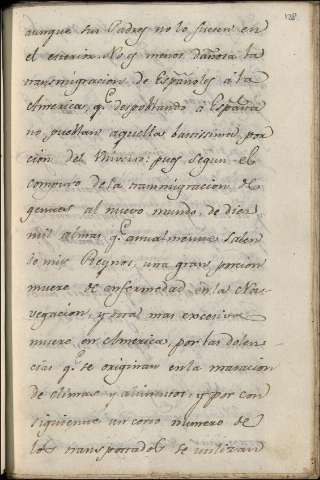 128
aunque sus Padres no lo fueren en
el exercio. No es menos dañosa la
transmigracion de Españoles à la
America, q.e despoblando à España
no pueblan aquella bastissima por
cion del Mundo: pues segun el
computo de la transmigracion de
gentes al nuevo mundo, de diez
mil almas q.e anualmente salen
de mis Reynos, una gran porcion
muere de enfermedad en la Na
vegacion, y otra mas excesiva
muere en America, por las dolen
cias q.e se originan en la mutacion
de climas y alimentos, y por con
siguiente un corto numero de
los transportados se utilizan